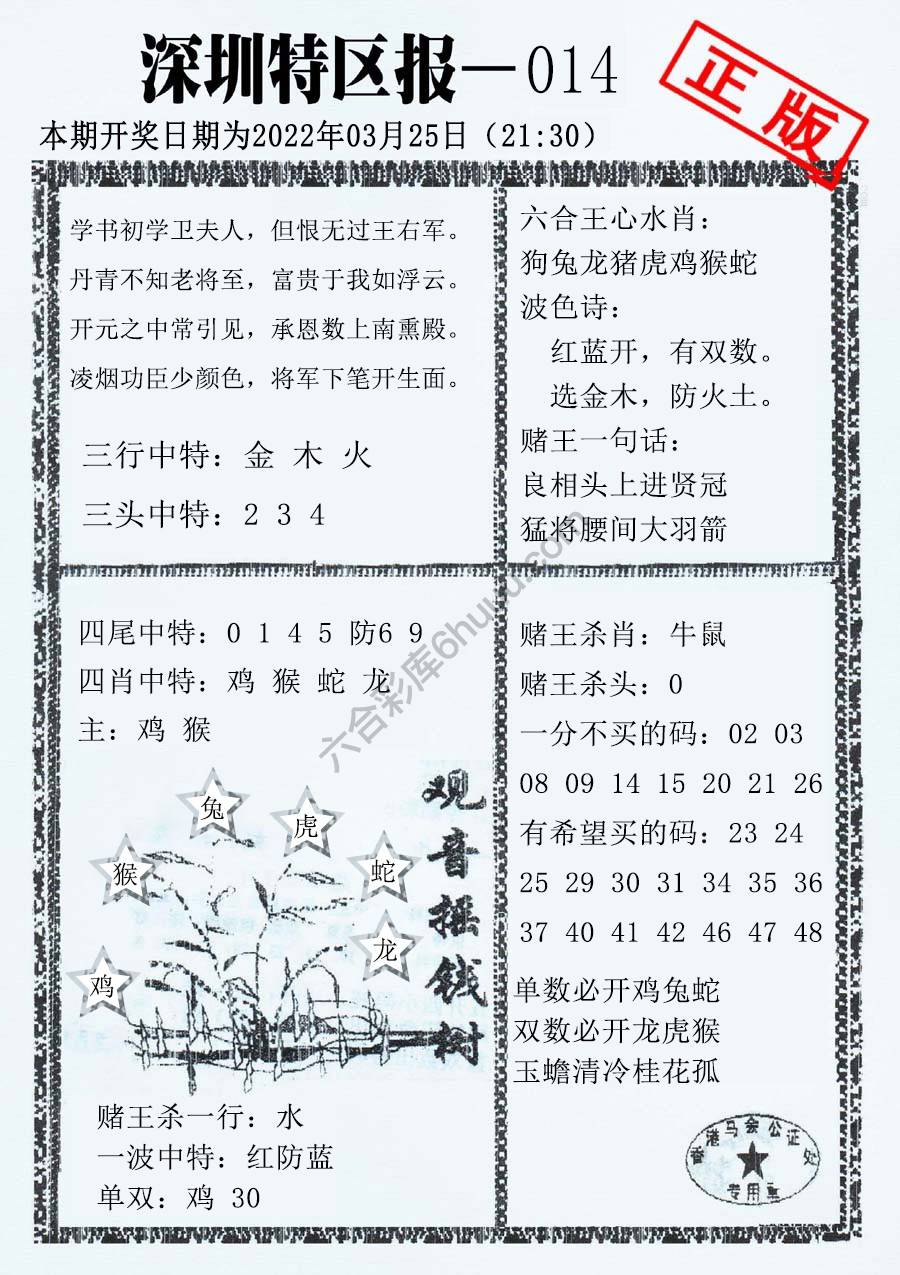 深圳特区报—014
正版
本期开奖日期为2022年03月25日（21:30）
学书初学卫夫人，但恨无过王右军。
丹青不知老将至，富贵于我如浮云。
开元之中常引见，承恩数上南熏殿。
凌烟功臣少颜色，将军下笔开生面。
三行中特：金 木 火
三头中特：2 3 4
六合王心水肖：
狗兔龙猪虎鸡猴蛇
波色诗：
红蓝开，有双数。
选金木，防火土。
赌王一句话：
良相头上进贤冠
猛将腰间大羽箭
四尾中特：0 1 4 5 防6 9
四肖中特：鸡 猴 蛇 龙
主：鸡 猴
兔
虎
猴
蛇
龙
鸡
观音摇钱树
赌王杀一行：水
一波中特：红防蓝
单双：鸡 30
赌王杀肖：牛鼠
赌王杀头：0
一分不买的码：02 03
08 09 14 15 20 21 26
有希望买的码：23 24
25 29 30 31 34 35 36
37 40 41 42 46 47 48
单数必开鸡兔蛇
双数必开龙虎猴
玉蟾清冷桂花孤
香港马会公证处
专用章
六合彩库6huuu.com